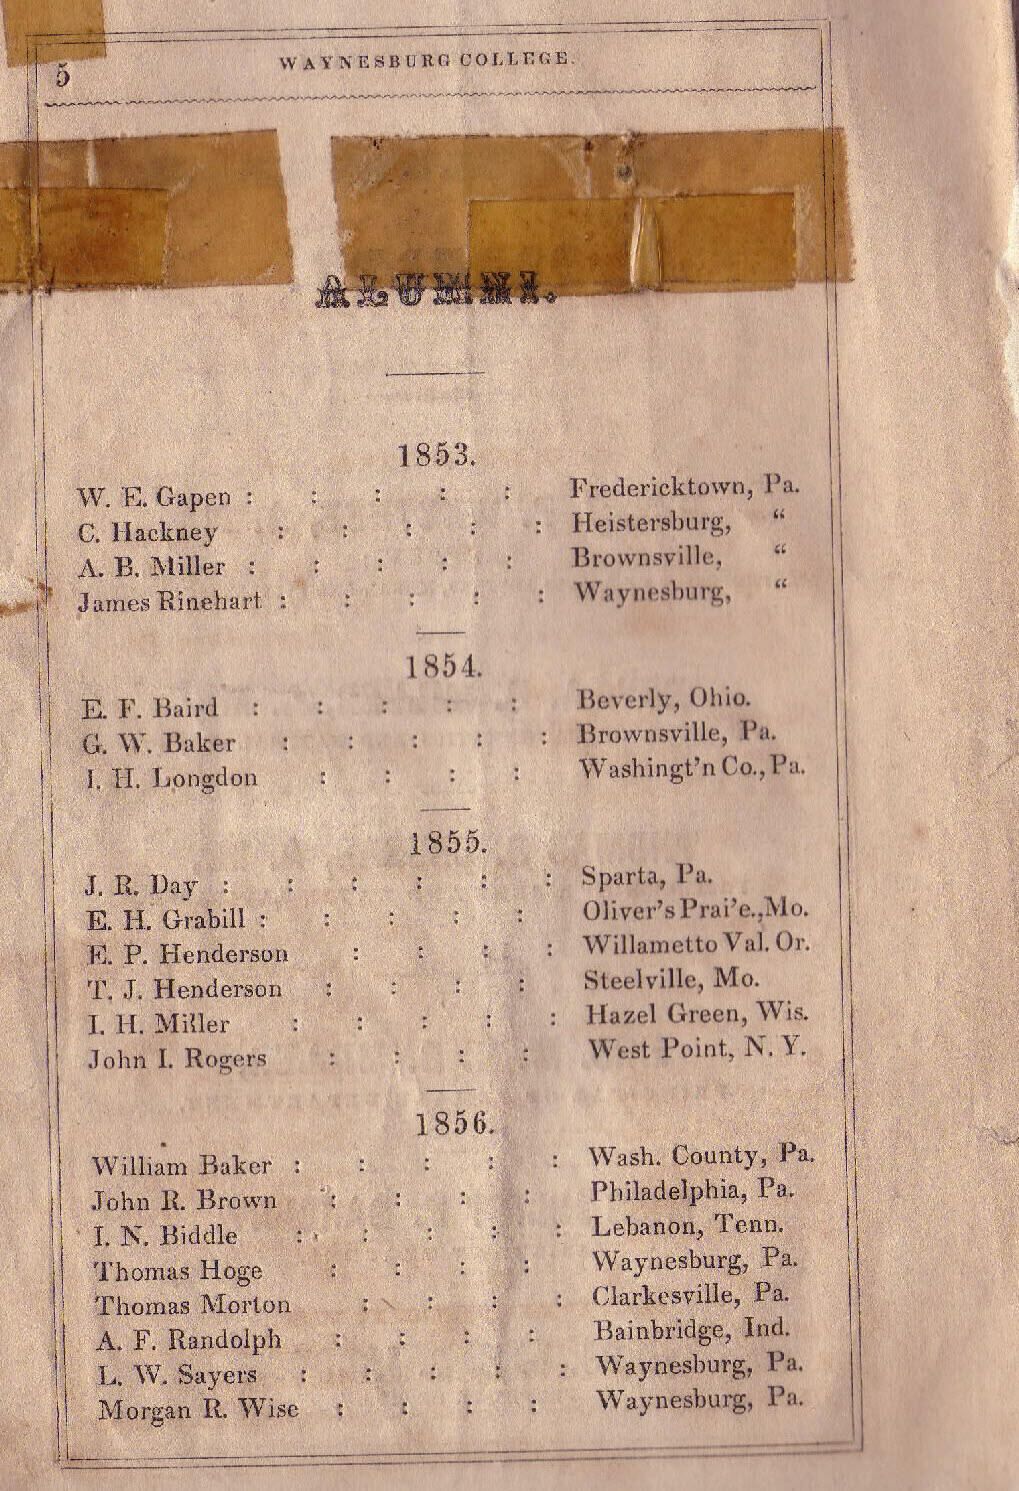 5 WAYNESBURG COLLEGE.
ALUMNI.
1853.
W. E. Gapen : : : : : Fredericktown, Pa.
C. Hackney : : : : : Heistersburg, “
A. B. Miller : : : : : Brownsville, “
James Rinehart : : : : : Waynesburg, “
1854.
E. F. Baird : : : : : Beverly, Ohio.
G. W. Baker : : : : : Brownsville, Pa.
I. H. Longdon : : : : Washingt’n Co., Pa.
1855.
J. R. Day : : : : : : Sparta, Pa.
E. H. Grabill : : : : : Oliver’s Prai’e.,Mo.
E. P. Henderson : : : : Willametto Val. Or.
T. J. Henderson : : : : Steelville, Mo.
I. H. Miller : : : : : Hazel Green, Wis.
John I. Rogers : : : : West Point, N. Y.
1856.
William Baker : : : : : Wash. County, Pa.
John R. Brown : : : : Philadelphia, Pa.
I. N. Biddle : : : : : Lebanon, Tenn.
Thomas Hoge : : : : Waynesburg, Pa.
Thomas Morton : : : : Clarkesville, Pa.
A. F. Randolph : : : : Bainbridge, Ind.
L. W. Sayers : : : : : Waynesburg, Pa.
Morgan R. Wise : : : : Waynesburg, Pa.